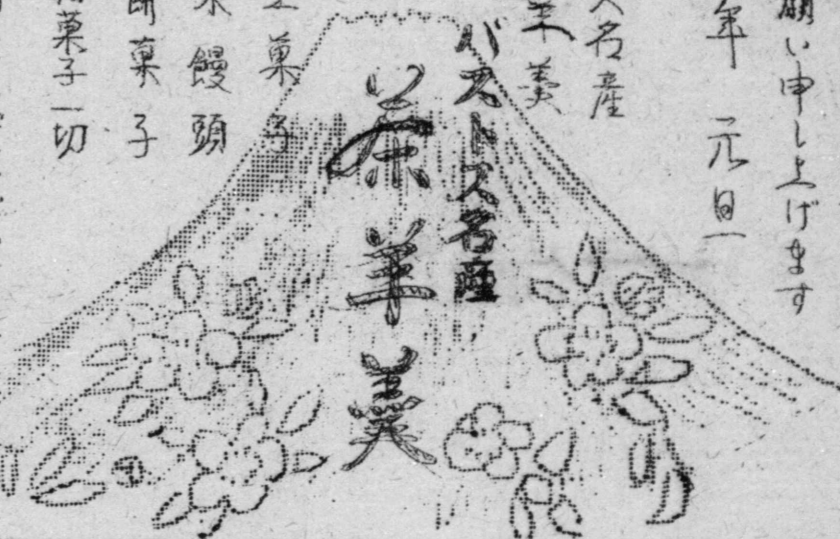 願い申し上げます
年 元旦
ス名産
羊羹
バストス名産
茶羊羹
菓子
饅頭
菓子
菓子一切